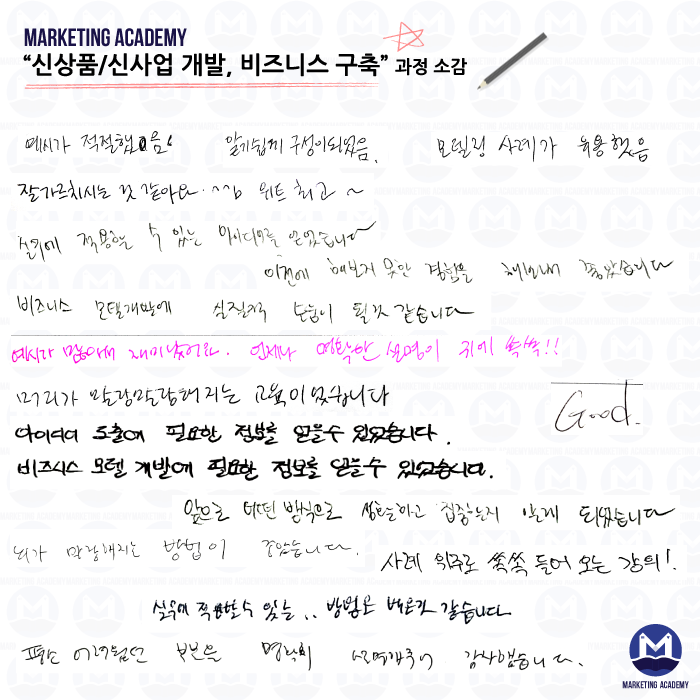 MARKETING ACADEMY
“신상품/신사업 개발, 비즈니스 구축” 과정 소감
예시가 적절했음.
알기쉽게 구성이되었음.
모델링 사례가 유용했음
잘가르치시는 것 같아요 ^^ 위트 최고 ~
실무에 적용하는 수 있는 아이디어를 얻었습니다
이전에 해보지 못한 경험을 해보내 좋았습니다
비즈니스 모델개발에 실질적 도움이 될것 같습니다
예시가 많아서 재미났어요. 언제나 명확한 설명이 귀에 쏙쏙!!
머리가 말랑말랑해지는 교육이었습니다
Good.
아이디어 도출에 필요한 정보를 얻을수 있었습니다.
비즈니스 모델 개발에 필요한 정보를 얻을수 있었습니다.
앞으로 어떤 방식으로 생각하고 집중하는지 알게 되었습니다
뇌가 말랑해지는 방법이 좋았습니다.
사례 위주로 쏙쏙 들어 오는 강의!
실무에 적용할수 있는.. 방법을 배운것 같습니다
평소 어려웠던 부분을 명확히 설명해주어 감사했습니다.
MARKETING ACADEMY